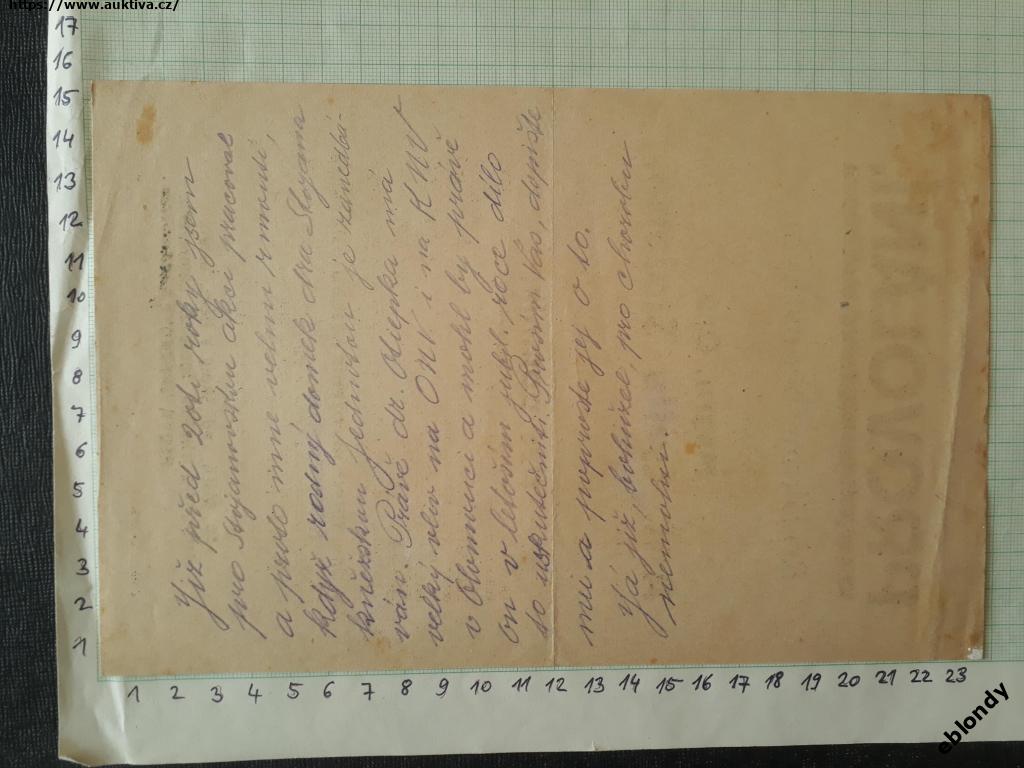 https://www.auktiva.cz/
Již před 20ti roky jsem
pro Stojanovskou akci pracoval
a proto mne velmi rmoutí,
když rodný domek dra Stojana
kněžskou Jednotou je zanedbá-
ván. Právě dr. má
velký vliv na ONV i na KNV
v Olomouci a mohl by právě
on v letošním jubil. roce dílo
to uskutečniti. Prosím Vás, dopište
mu a poproste jej o to.
Já již, bohužel, pro chorobu
nemohu.
PROVOLÁNÍ
17
16
15
14
13
12
11
10
9
8
7
6
5
4
3
2
1
1 2 3 4 5 6 7 8 9 10 11 12 13 14 15 16 17 18 19 20 21 22 23
eblondy